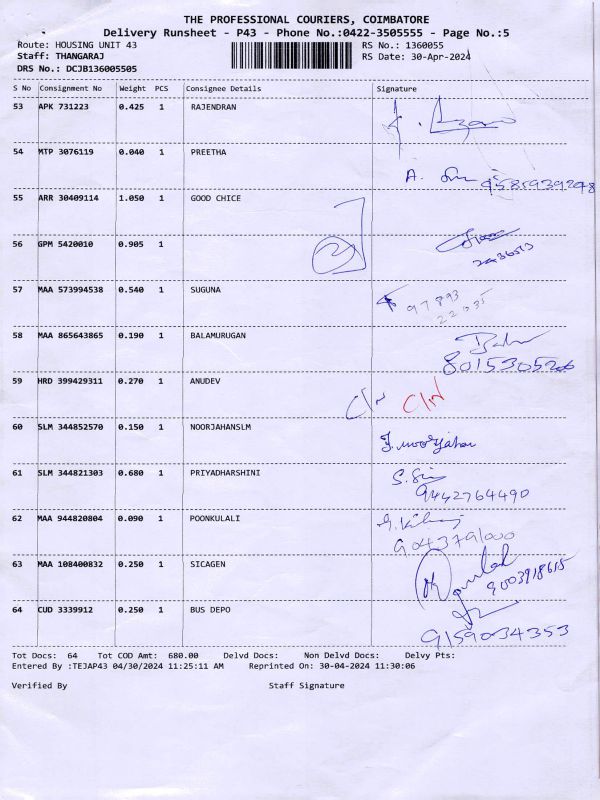 THE PROFESSIONAL COURIERS, COIMBATORE
Delivery Runsheet - P43 - Phone No.:0422-3505555 - Page No.:5
Route: HOUSING UNIT 43 RS No.: 1360055
Staff: THANGARAJ RS Date: 30-Apr-2024
DRS No.: DCJB136005505
S No Consignment No Weight PCS Consignee Details Signature
53 APK 731223 0.425 1 RAJENDRAN
54 MTP 3076119 0.040 1 PREETHA
A.
55 ARR 30409114 1.050 1 GOOD CHICE
56 GPM 5420010 0.905 1
57 MAA 573994538 0.540 1 SUGUNA
97893
22035
58 MAA 865643865 0.190 1 BALAMURUGAN
59 HRD 399429311 0.270 1 ANUDEV
C/N C/N
60 SLM 344852570 0.150 1 NOORJAHANSLM
J. noorjahan
61 SLM 344821303 0.680 1 PRIYADHARSHINI
9442764490
62 MAA 944820804 0.090 1 POONKULALI
9043791000
63 MAA 108400832 0.250 1 SICAGEN
9003918615
64 CUD 3339912 0.250 1 BUS DEPO
9159034353
Tot Docs: 64 Tot COD Amt: 680.00 Delvd Docs: Non Delvd Docs: Delvy Pts:
Entered By :TEJAP43 04/30/2024 11:25:11 AM Reprinted On: 30-04-2024 11:30:06
Verified By Staff Signature